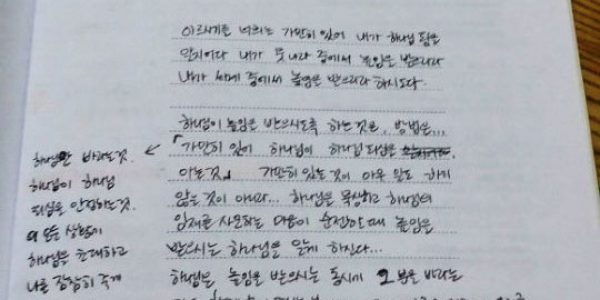 이르시기를 너희는 가만히 있어 내가 하나님 됨을
알지어다 내가 뭇 나라 중에서 높임을 받으리라
내가 세계 중에서 높임을 받으리라 하시도다.
하나님이 높임을 받으시도록 하는 것은, 방법은...
가만히 있어 하나님이 하나님 되심을
아는 것. 가만히 있는 것이 아무 일도 하지
않는 것이 아니라... 하나님을 묵상하고 하나님의
임재를 사모하는 마음이 순전할 때 높임을
받으시는 하나님을 알게 하신다...
하나님은 높임을 받으시는 동시에 그 분을 바라는
하나님만 바라는 것.
하나님이 하나님
되심을 인정하는 것.
내 모든 상황에
하나님을 초대하고
나를 잠잠히